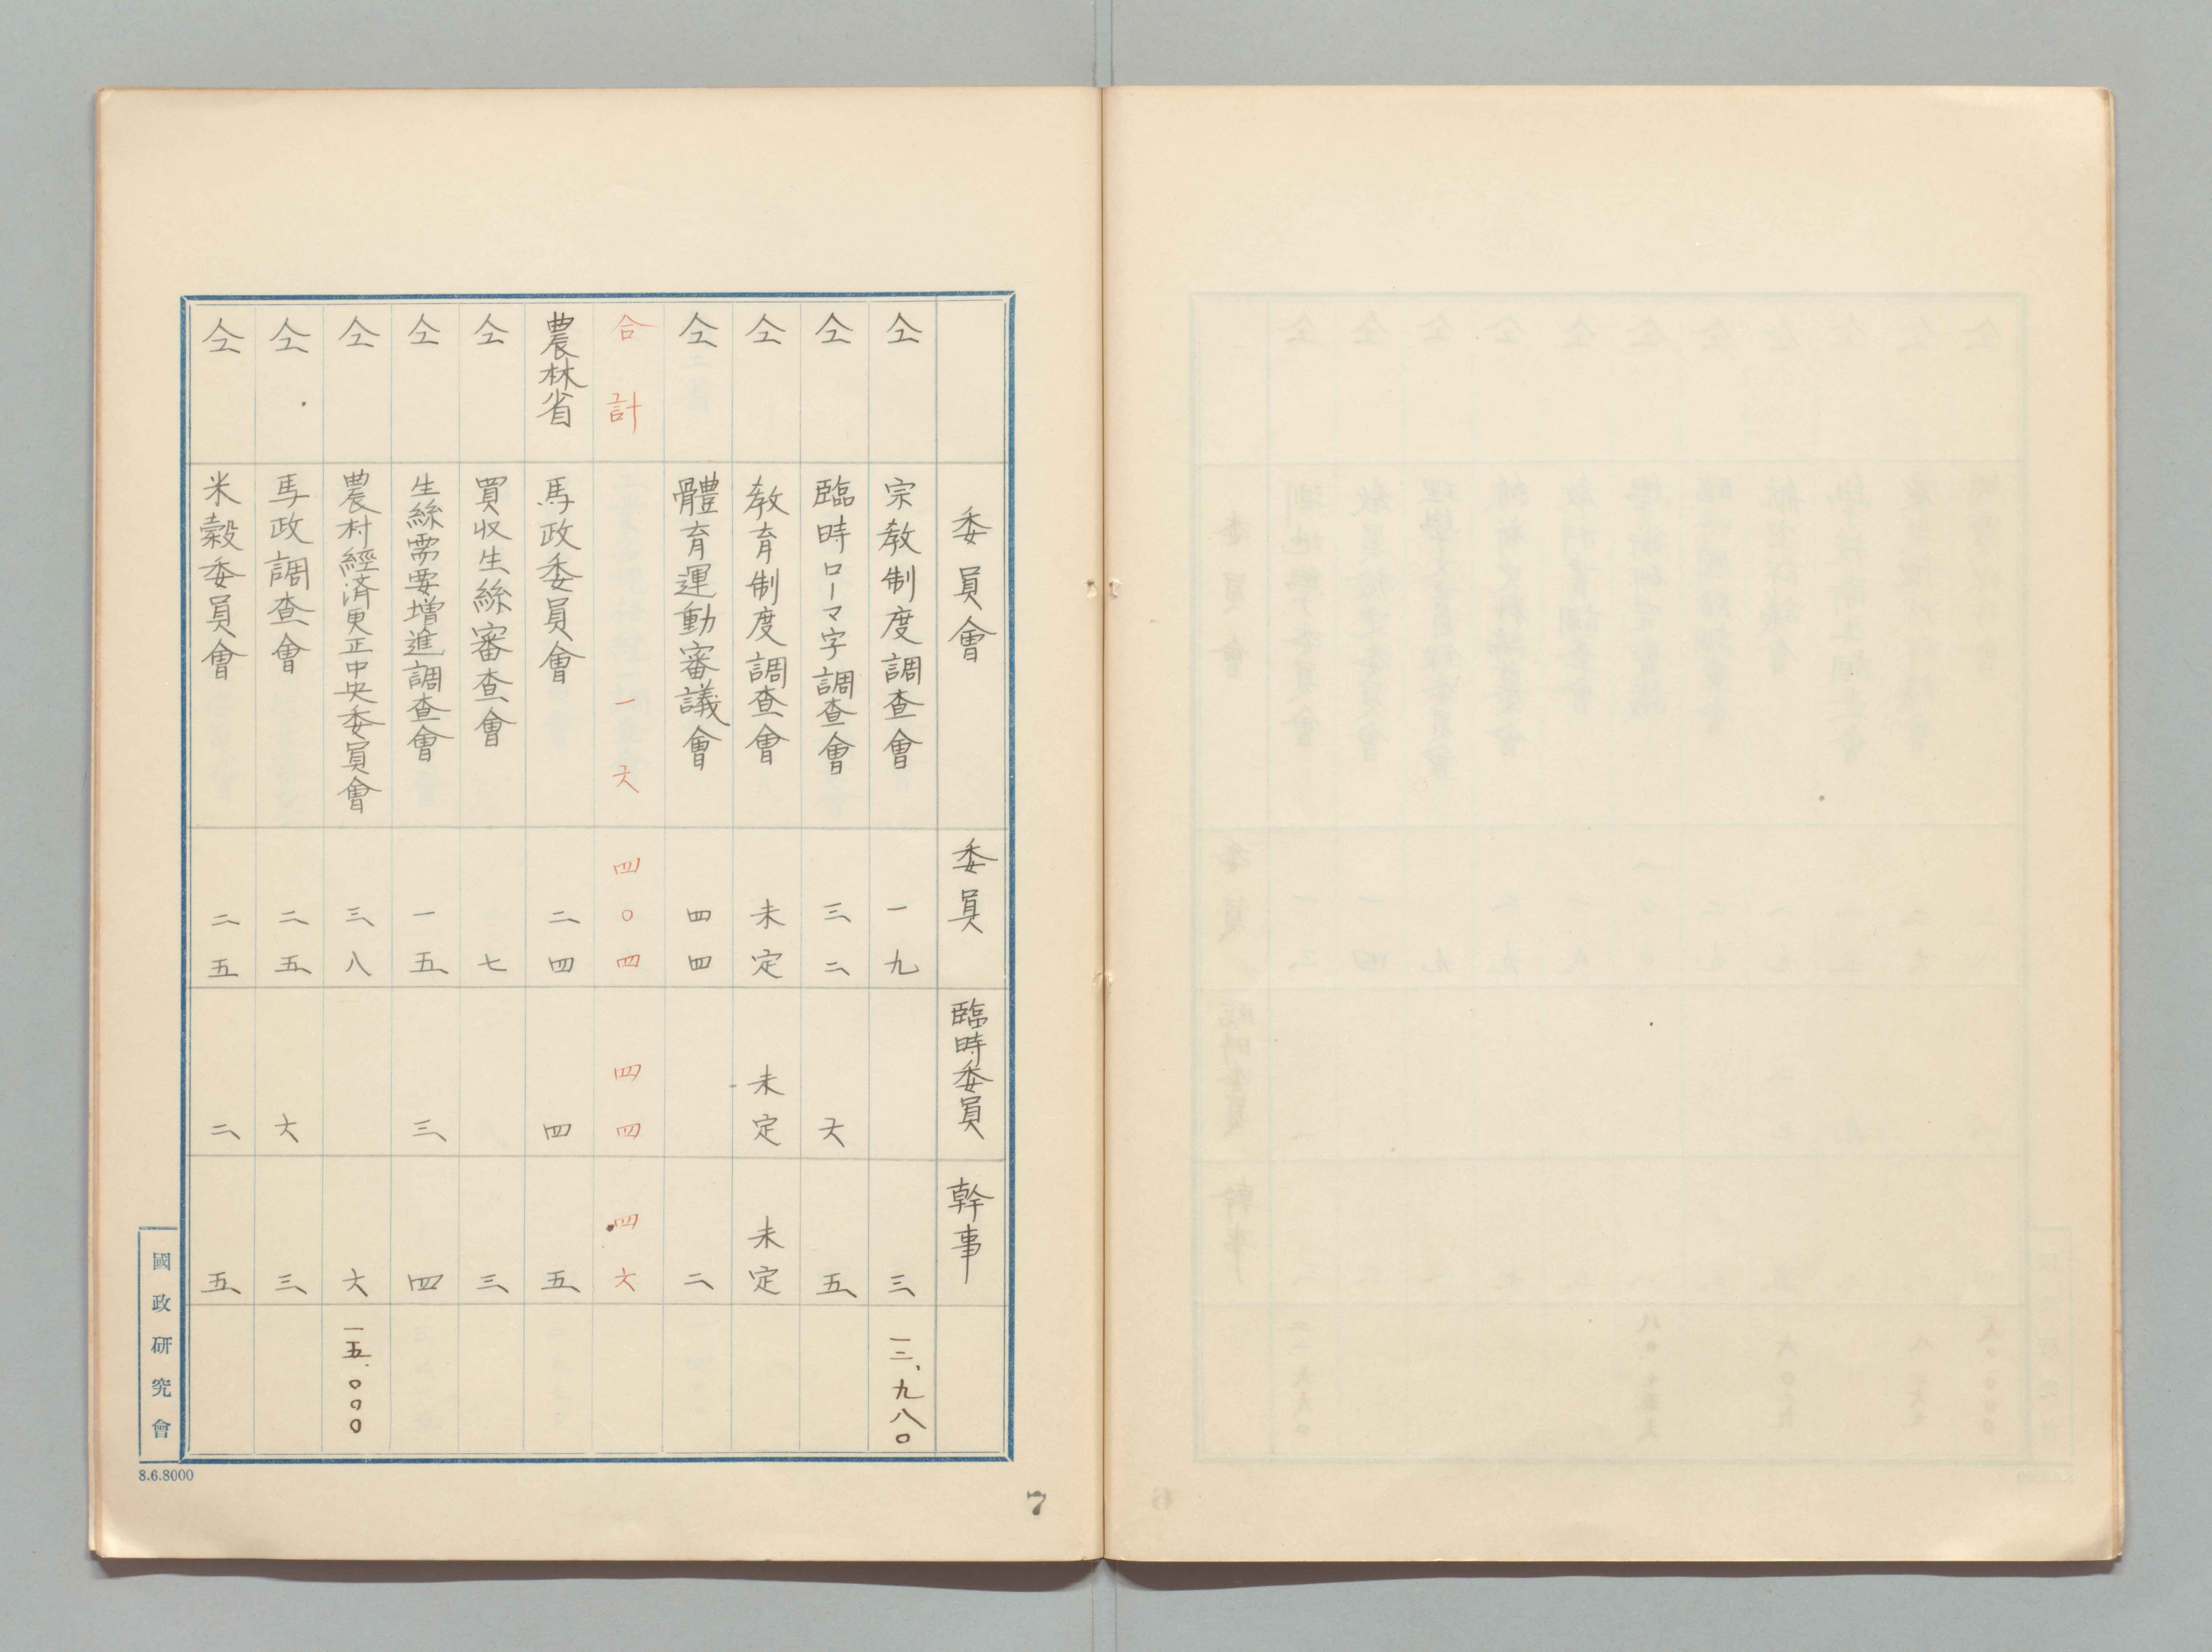 委員會 委員 臨時委員 幹事
仝 宗教制度調査會 一九 三 一三、九八〇
仝 臨時ローマ字調査會 三二 六 五
仝 教育制度調査會 未定 未定 未定
仝 體育運動審議會 四四 二
合計 一六 四〇四 四四 四六
農林省 馬政委員會 二四 四 五
仝 買収生絲審査會 七 三
仝 生絲需要増進調査會 一五 三 四
仝 農村經済更正中央委員會 三八 六 一五、〇〇〇
仝 馬政調査會 二五 六 三
仝 米穀委員會 二五 二 五
國政研究會
8.6.8000
7